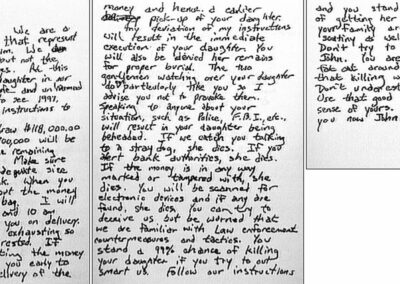 We are a
that represent
but not the
At this
daughter in our
and unharmed
to see 1997,
instructions to
draw $118,000.00
100,000 will be
the remaining
Make sure
adequate size
When you
put the money
bag. I will
and 10 am
you on delivery.
exhausting so
rested. If
getting the money
you early to
delivery of the
money and hence a earlier
pick-up of your daughter.
Any deviation of my instructions
will result in the immediate
execution of your daughter. You
will also be denied her remains
for proper burial. The two
gentlemen watching over your daughter
do particularly like you so I
advise you not to provoke them.
Speaking to anyone about your
situation, such as Police, F.B.I., etc.,
will result in your daughter being
beheaded. If we catch you talking
to a stray dog, she dies. If you
alert bank authorities, she dies.
If the money is in any way
marked or tampered with, she
dies. You will be scanned for
electronic devices and if any are
found, she dies. You can try to
deceive us but be warned that
we are familiar with Law enforcement
countermeasures and tactics. You
stand a 99% chance of killing
your daughter if you try to out
smart us. Follow our instructions
and you stand
of getting her
your family are
scrutiny as well
Don't try to
John. You are
fat cat around
that killing wi
Don't underest
Use that good
sense of yours.
you now John